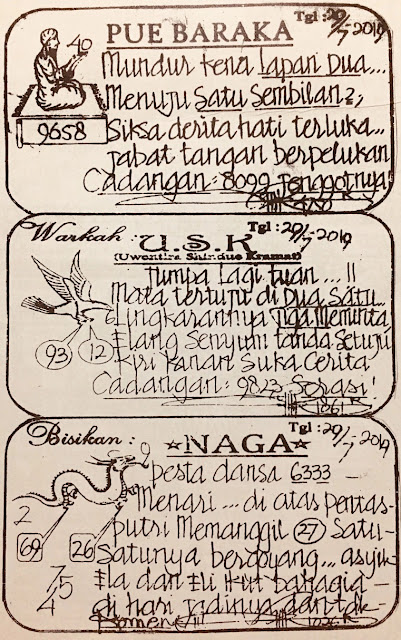 PUE BARAKA
Tgl : 20/7-2019
40
9658
Mundur kena Lapan Dua...
Menuju Satu Sembilan 2;
Siksa derita hati terluka...
Jabat tangan berpelukan
Cadangan: 8099 Jenggotnya!
Warkah : U.S.K
Tgl : 20/7-2019
(Uwentira Shindue Kramat)
Jumpa Lagi tuan ... !!
Mata tertuju di Dua Satu..
Lingkarannya Tiga Meminta
Elang Senyum tanda Setuju
Kiri kanan Suka Cerita
Cadangan: 9823 Serasi!
93
12
6
1861
Bisikan : NAGA
Tgl : 20/7-2019
9
pesta dansa 6333 -
Menari ... di atas pentas-
putri Memanggil 27 Satu-
Satunya bergoyang... asyik
Ela dan Eli ikut bahagia -
di hari jadinya dan tak-
2
69
26
7
5
4